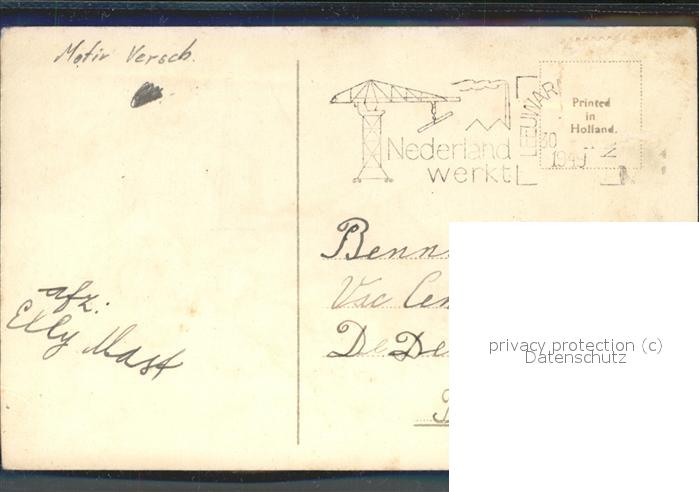 Motiv Versch.
Nederland
werkt
LEEUWAR
30
1949
N
Printed
in
Holland.
Benn
Vac Cen
De De
afz:
Elly Mast
privacy protection (c)
Datenschutz